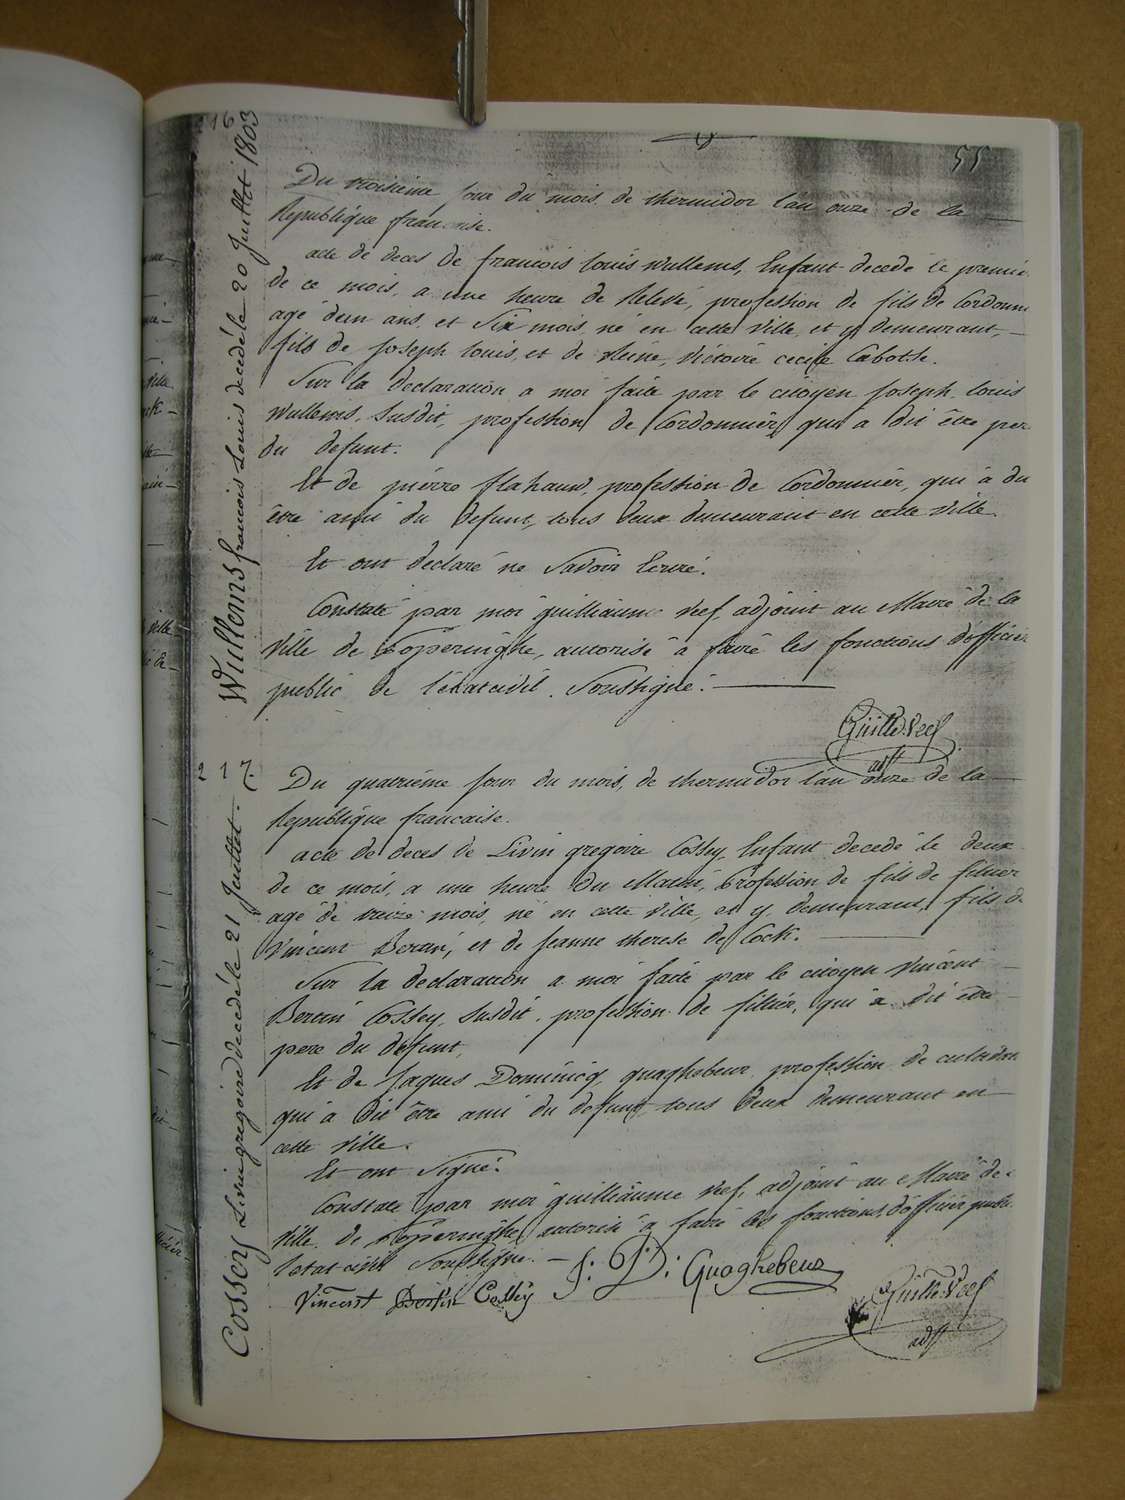 55
216
Wullems francois Louis decedé le 20 Juillet 1803
Du troisieme jour du mois de thermidor l'an onze de la
Republique francaise.
acte de deces de francois louis wullems, Enfant decedé le premie
de ce mois, a une heure de Relevé, profession de fils de Cordonn
agé d'un ans, et Six mois, né en cette ville, et y demeurant,
fils de joseph louis, et de Reine, victoire cecile Cabotse.
Sur la declaration a moi faite par le citoyen joseph louis
wullems, susdit, profession de Cordonnier, qui a dit être per
du defunt.
Et de pierre flahauw, profession de Cordonnier, qui à du
être ami du defunt, tous deux demeurant en cette ville
Et ont declaré ne savoir Ecrire.
Constaté par moi guilliaume Neef adjoint au Maire de la
ville de Poperinghe, autorisé à faire les fonctions d'officier
public de l'état civil. Soussigné.
Guille. Neef
adjt
217.
Cossey Livin gregoire decedé le 21 Juillet.
Du quatrieme jour du mois, de thermidor l'an onze de la
Republique francaise.
acte de deces de Livin gregoire Cossey, Enfant decedé le deux
de ce mois, a une heure du Matin, Profession de fils de filuer
agé de treize mois, né en cette ville, et y demeurant, fils, d
Vincent Bertin, et de Jeanne therese de Cock.
Sur la declaration a moi faite par le citoyen Vincent
Bertin Cossey, susdit, profession de filuer, qui a dit être
pere du defunt,
Et de Jaques Dominicq quaghebeur profession de
qui à dit être ami du defunt, tous deux demeurant en
cette ville.
Et ont Signé.
Constaté par moi guilliaume Neef, adjoint au Maire de
ville de Poperinghe, autorisé a faire les fonctions, d'officier public
l'état civil Soussigné.
Vincent Bertin Cossey J: D: Quaghebeur
Guille. Neef
adjt